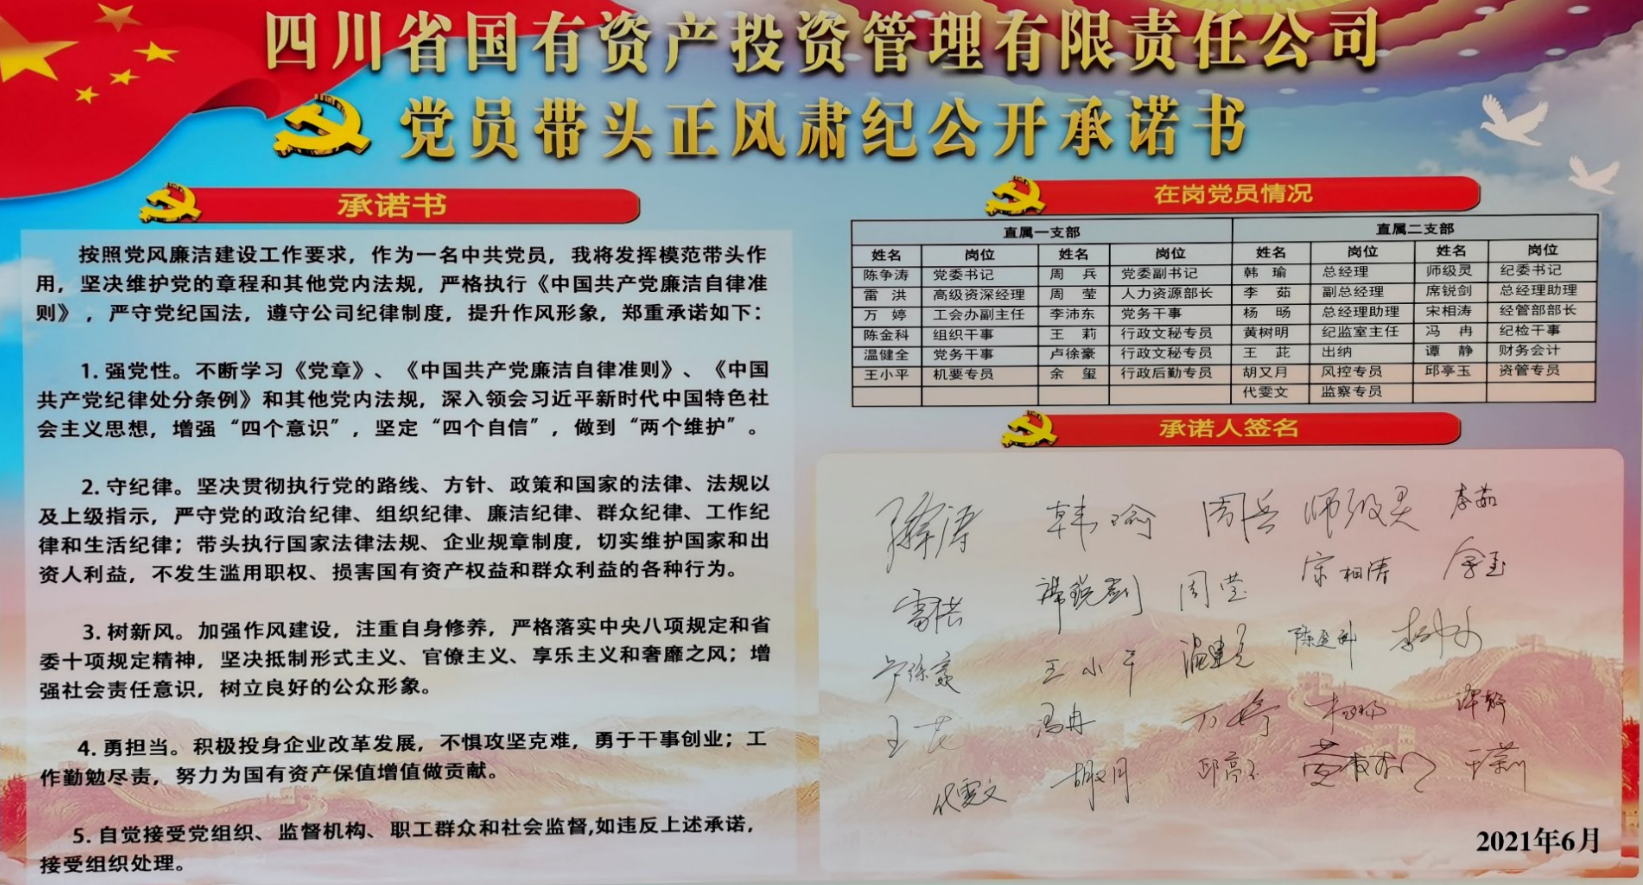 四川省国有资产投资管理有限责任公司
党员带头正风肃纪公开承诺书
承诺书
按照党风廉洁建设工作要求，作为一名中共党员，我将发挥模范带头作
用，坚决维护党的章程和其他党内法规，严格执行《中国共产党廉洁自律准
则》，严守党纪国法，遵守公司纪律制度，提升作风形象，郑重承诺如下：
1. 强党性。不断学习《党章》、《中国共产党廉洁自律准则》、《中国
共产党纪律处分条例》和其他党内法规，深入领会习近平新时代中国特色社
会主义思想，增强“四个意识”，坚定“四个自信”，做到“两个维护”。
2. 守纪律。坚决贯彻执行党的路线、方针、政策和国家的法律、法规以
及上级指示，严守党的政治纪律、组织纪律、廉洁纪律、群众纪律、工作纪
律和生活纪律；带头执行国家法律法规、企业规章制度，切实维护国家和出
资人利益，不发生滥用职权、损害国有资产权益和群众利益的各种行为。
3. 树新风。加强作风建设，注重自身修养，严格落实中央八项规定和省
委十项规定精神，坚决抵制形式主义、官僚主义、享乐主义和奢靡之风；增
强社会责任意识，树立良好的公众形象。
4. 勇担当。积极投身企业改革发展，不惧攻坚克难，勇于干事创业；工
作勤勉尽责，努力为国有资产保值增值做贡献。
5. 自觉接受党组织、监督机构、职工群众和社会监督,如违反上述承诺，
接受组织处理。
在岗党员情况
直属一支部 直属二支部
姓名 岗位 姓名 岗位 姓名 岗位 姓名 岗位
陈争涛 党委书记 周 兵 党委副书记 韩 瑜 总经理 师级灵 纪委书记
雷 洪 高级资深经理 周 莹 人力资源部长 李 茹 副总经理 席锐剑 总经理助理
万 婷 工会办副主任 李沛东 党务干事 杨 旸 总经理助理 宋相涛 经管部部长
陈金科 组织干事 王 莉 行政文秘专员 黄树明 纪监室主任 冯 冉 纪检干事
温健全 党务干事 卢徐豪 行政文秘专员 王 茈 出纳 谭 静 财务会计
王小平 机要专员 余 玺 行政后勤专员 胡又月 风控专员 邱亭玉 资管专员
代雯文 监察专员
承诺人签名
韩瑜 周兵 师级灵 李茹
雷洪 席锐剑 周莹 宋相涛 余玺
卢徐豪 王小平 温健全 陈金科
王茈 冯冉 万婷 杨旸 谭静
代雯文 胡又月 邱亭玉 黄树明 王莉
2021年6月